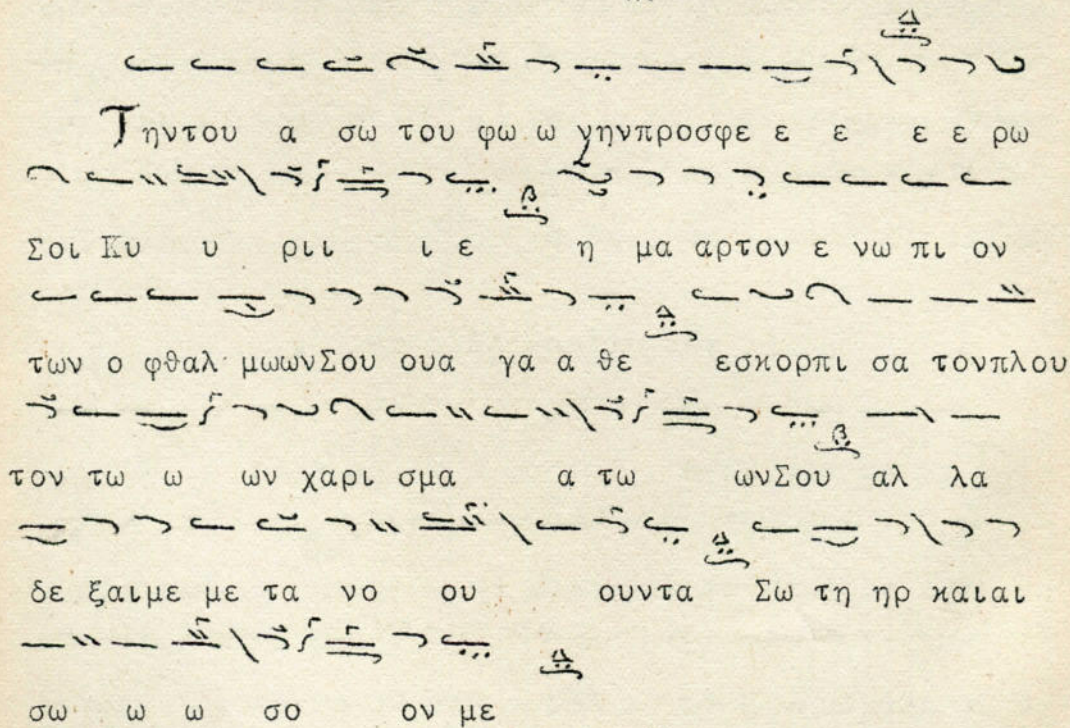 Τηντου α σω του φω ω νηνπροσφε ε ε ε ε ρω
Σοι Κυ υ ριι ι ε η μα αρτον ε νω πι ον
των ο φθαλ μωωνΣου ουα γα α θε εσκορπι σα τονπλου
τον τω ω ων χαρι σμα α τω ωνΣου αλ λα
δε ξαιμε με τα νο ου ουντα Σω τη ηρ καιαι
σω ω ω σο ον με